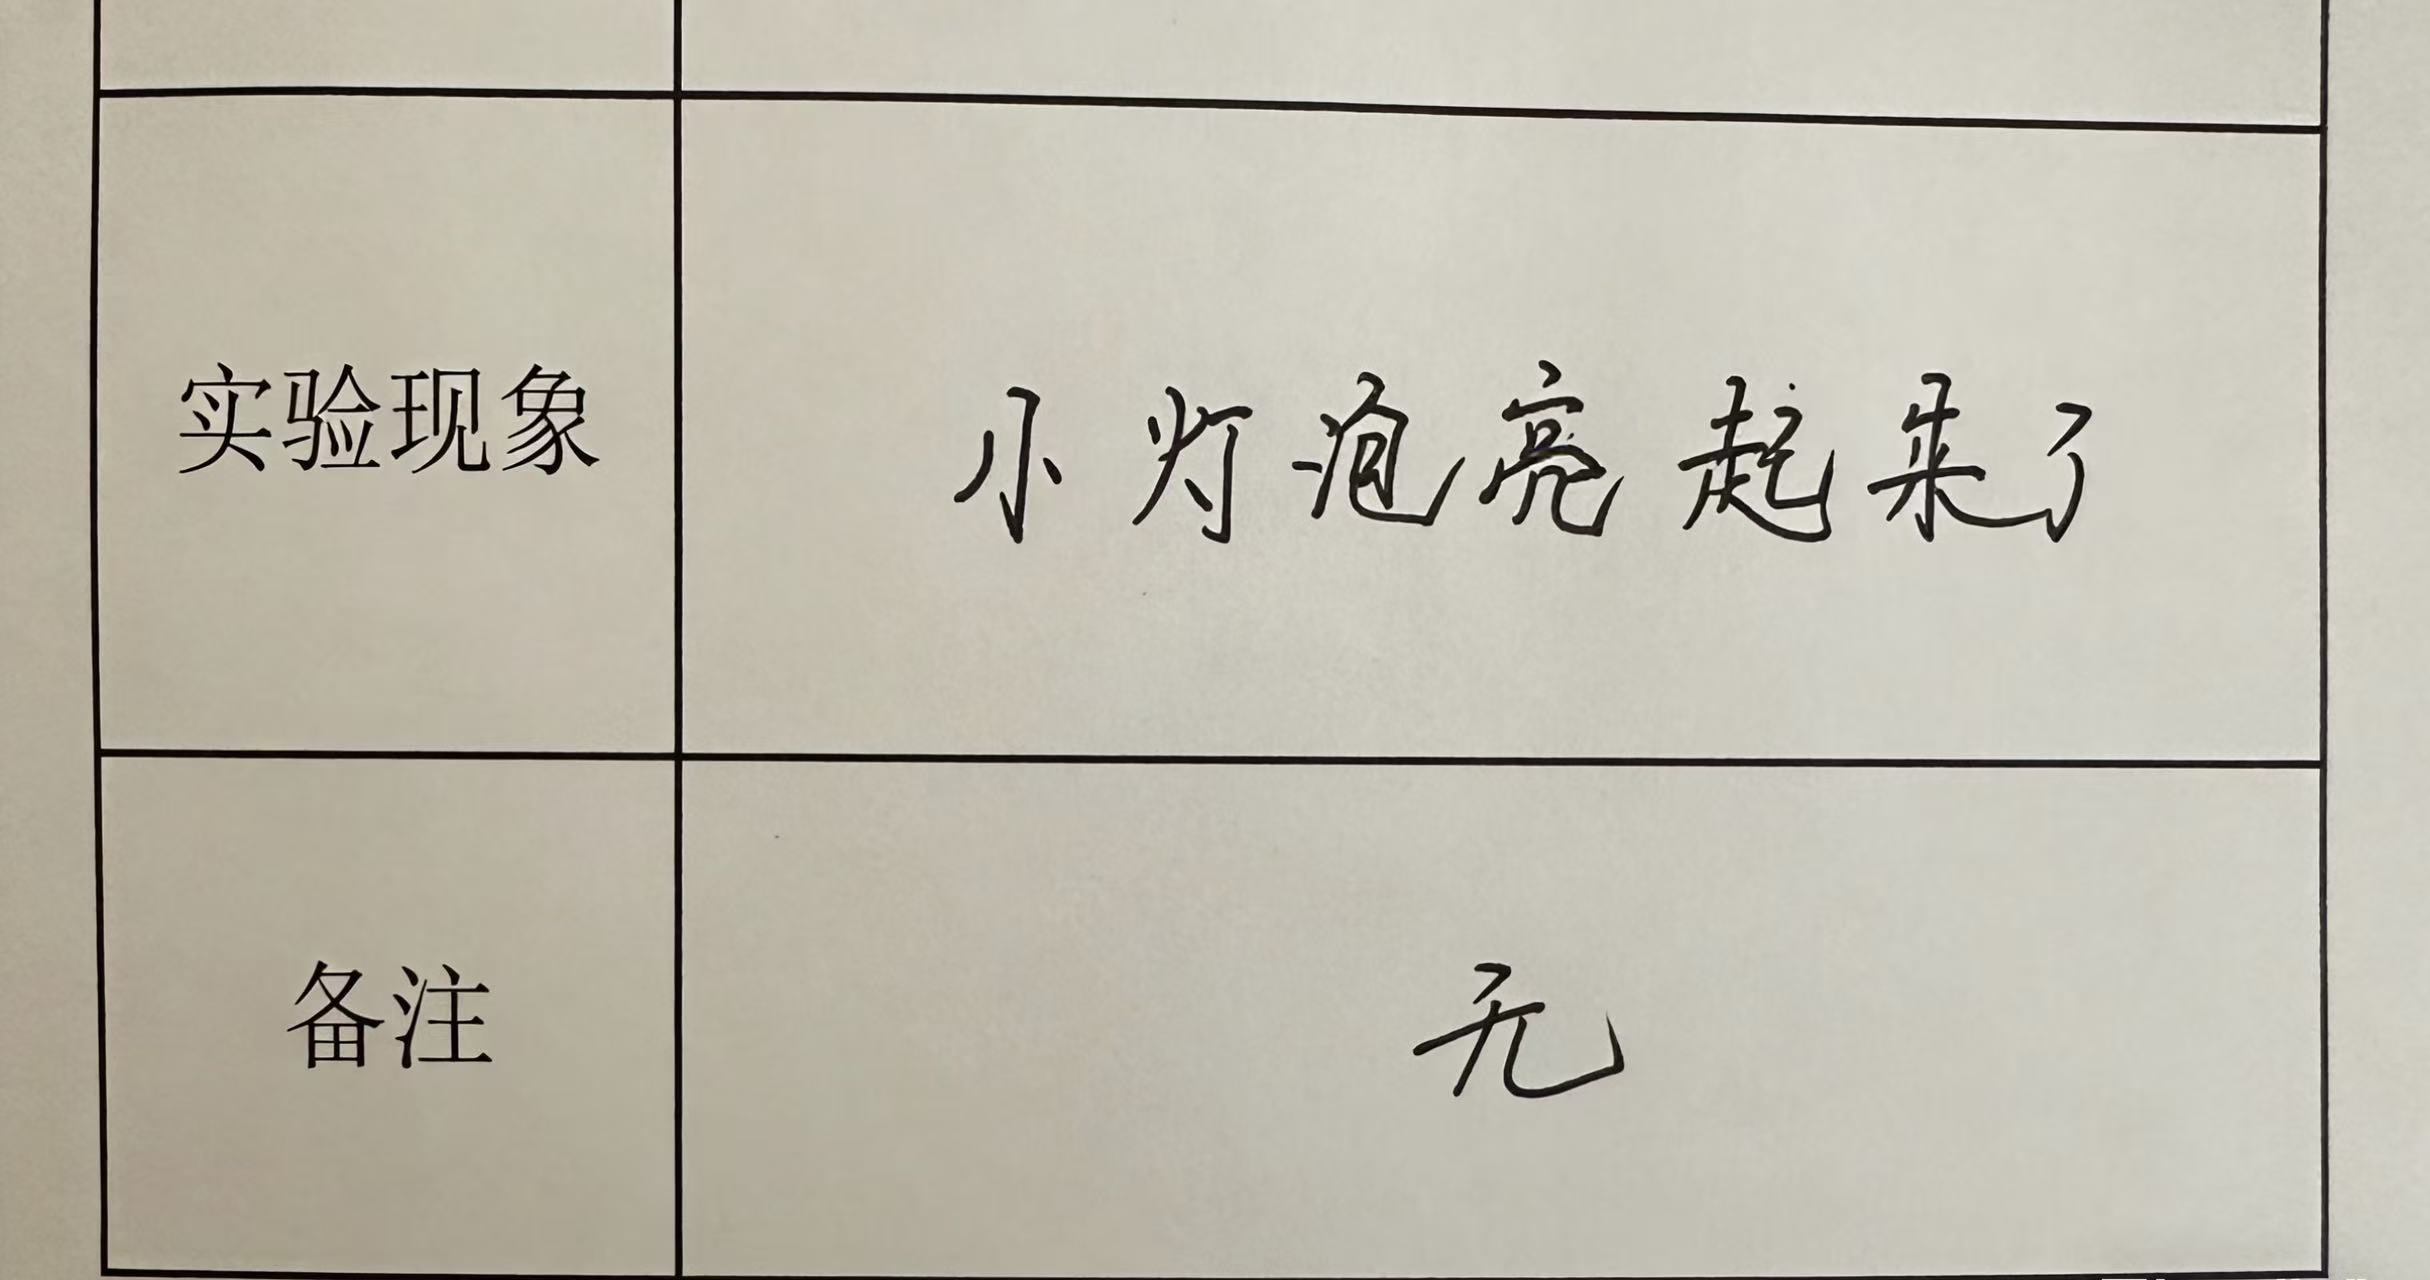 实验现象 小灯泡亮起来了
备注 无